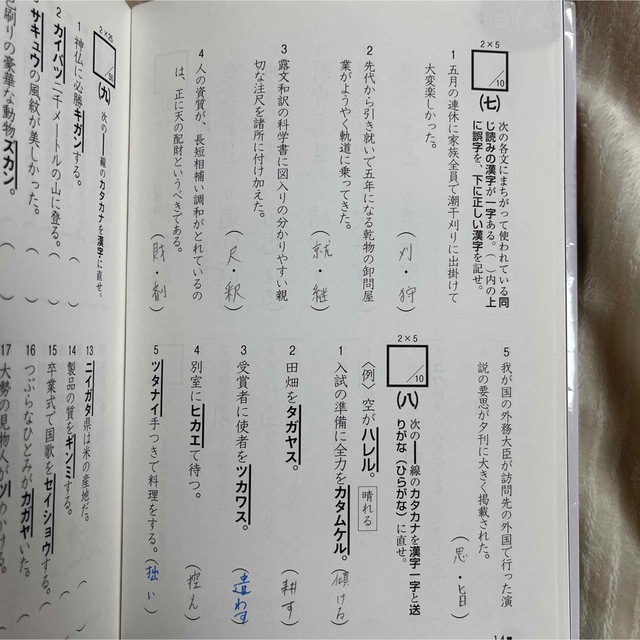 2×5
/10
(七)
次の各文にまちがって使われている同
じ読みの漢字が一字ある。( )内の上
に誤字を、下に正しい漢字を記せ。
1 五月の連休に家族全員で潮干刈りに出掛けて
大変楽しかった。
(刈・狩)
2 先代から引き就いで五年になる乾物の卸問屋
業がようやく軌道に乗ってきた。
(就・継)
3 露文和訳の科学書に図入りの分かりやすい親
切な注尺を諸所に付け加えた。
(尺・釈)
4 人の資質が、長短相補い調和がとれているの
は、正に天の配財というべきである。
(財・剤)
5 我が国の外務大臣が訪問先の外国で行った演
説の要思が夕刊に大きく掲載された。
(思・旨)
2×5
/10
(八)
次の━━線のカタカナを漢字一字と送
りがな(ひらがな)に直せ。
〈例〉空がハレル。 晴れる
1 入試の準備に全力をカタムケル。
(傾ける)
2 田畑をタガヤス。
(耕す)
3 受賞者に使者をツカワス。
(遣わす)
4 別室にヒカエて待つ。
(控え)
5 ツタナイ手つきで料理をする。
(拙い)
2×25
/50
(九)
次の━━線のカタカナを漢字に直せ。
1 神仏に必勝キガンする。
( )
2 カイバツ二千メートルの山に登る。
( )
サキュウの風紋が美しかった。
( )
刷りの豪華な動物ズカン。
( )
13 ニイガタ県は米の産地だ。
14 製品の質をギンミする。
15 卒業式で国歌をセイショウする。
16 つぶらなひとみがカガヤいた。
17 大勢の見物人が
14